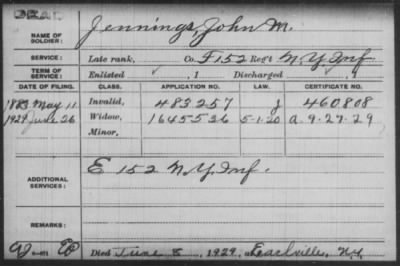 DEAD
NAME OF SOLDIER: Jennings, John M.
SERVICE: Late rank, Co. F 152 Reg't N.Y. Inf
TERM OF SERVICE: Enlisted , 1 Discharged , 1
DATE OF FILING. CLASS. APPLICATION NO. LAW. CERTIFICATE NO.
1883 May 11 Invalid, 483257 g 460808
1929 June 26 Widow, 1645526 5-1-20 a. 9-27-29
Minor,
ADDITIONAL SERVICES: E 152 N.Y. Inf.
REMARKS:
Died June 8, 1929, Earlville, N.Y.